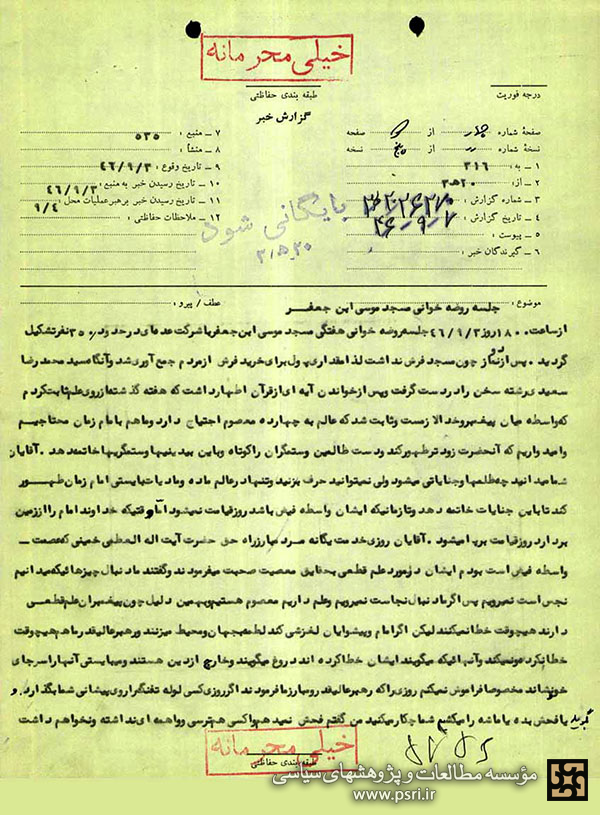 خیلی محرمانه
درجه فوریت
طبقه بندی حفاظتی
گزارش خبر
صفحهٔ شماره چهار از صفحه
نسخهٔ شماره از پنج نسخه
۱ ـ به : ۳۱۶
۲ ـ از : ۲۰ ه ۳
۳ ـ شماره گزارش :
۴ ـ تاریخ گزارش : ۴۶ـ۹ـ۷
۵ ـ پیوست :
۶ ـ گیرندگان خبر :
۷ ـ منبع : ۵۳۵
۸ ـ منشأ :
۹ ـ تاریخ وقوع : ۴۶/۹/۳
۱۰ ـ تاریخ رسیدن خبر به منبع : ۴۶/۹/۳
۱۱ ـ تاریخ رسیدن خبر برهبر عملیات محل : ۹/۴
۱۲ ـ ملاحظات حفاظتی :
بایگانی شود
موضوع : جلسه روضه خوانی مسجد موسی ابن جعفر
عطف / پیرو :
از ساعت ۱۸۰۰ روز ۴۶/۹/۳ جلسه روضه خوانی هفتگی مسجد موسی ابن جعفر با شرکت عده ای در حدود ۳۵۰ نفر تشکیل
گردید . پس از نماز چون مسجد فرش نداشت لذا مقداری پول برای خرید فرش از مردم جمع آوری شد و آنگاه سید محمد رضا
سعیدی رشته سخن را در دست گرفت و پس از خواندن آیه ای از قرآن اظهار داشت که هفته گذشته از روی علم ثابت کردم
که واسطه میان پیغمبر و خدا لازمست و ثابت شد که عالم به چهارده معصوم احتیاج دارد و ما هم با مام زمان محتاجیم
و امیدواریم که آنحضرت زودتر ظهور کند و دست ظالمین و ستمگران را کوتاه و باین بیدینیها و ستمگریها خاتمه دهد . آقایان
شما میدانید چه ظلمها و جنایاتی میشود ولی نمیتوانید حرف بزنید و تنها در عالم ماده و مادیات بایستی امام زمان ظهور
کند تا باین جنایات خاتمه دهد و تا زمانیکه ایشان واسطه فیض باشد روز قیامت نمیشود اما وقتیکه خداوند امام را از زمین
بردارد روز قیامت برپا میشود . آقایان روزی خدمت یگانه مرد مبارز راه حق حضرت آیت اله العظمی خمینی که عصمت ـ
واسطه فیض است بودم ایشان در مورد علم قطعی بحقایق معصیت صحبت میفرمودند و گفتند ما دنبال چیزهائیکه میدانیم
نجس است نمیرویم پس اگر ما دنبال نجاست نمیرویم و علم داریم معصوم هستیم و بهمین دلیل چون پیغمبران علم قطعی
دارند هیچوقت خطا نمیکنند لیکن اگر امام و پیشوایان لغزشی کند لطمه بجهان و محیط میزنند و رهبر عالیقدر ما هم هیچوقت
خطا نکرده و نمیکند و آنهائیکه میگویند ایشان خطا کرده اند دروغ میگویند و خارج از دین هستند و میبایستی آنها را سرجای
خود نشاند مخصوصا فراموش نمیکنم روزی را که رهبر عالیقدر و مبارز ما فرمودند اگر روزی کسی لوله تفنگ را روی پیشانی شما بگذارد و
بگوید یا فحش بده یا ماشه را میکشم شما چکار میکنید من گفتم فحش نمیدهم و از کسی هم ترسی و واهمه ای نداشته و نخواهم داشت
خیلی محرمانه
طبقه بندی حفاظتی
مؤسسه مطالعات و پژوهشهای سیاسی
www.psri.ir